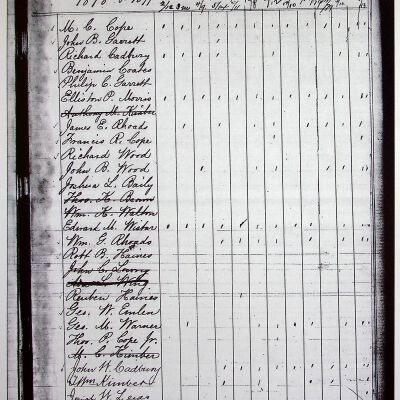 M. C. Cope
John B. Garrett
Richard Cadbury
Benjamin Coates
Philip C. Garrett
Elliston P. Morris
Anthony M. Kimber
James E. Rhoads
Francis R. Cope
Richard Wood
John B. Wood
Joshua L. Baily
Thos. K. Brown
Wm. K. Walton
Edward M. Wistar
Wm. G. Rhoads
Robt B. Haines
John C.
Wing
Reuben Haines
Geo. W. Emlen
Geo. M. Warner
Thos. P. Cope Jr.
M. C. Kimber
John W. Cadbury
Thos. Kimber
David W. Leeds